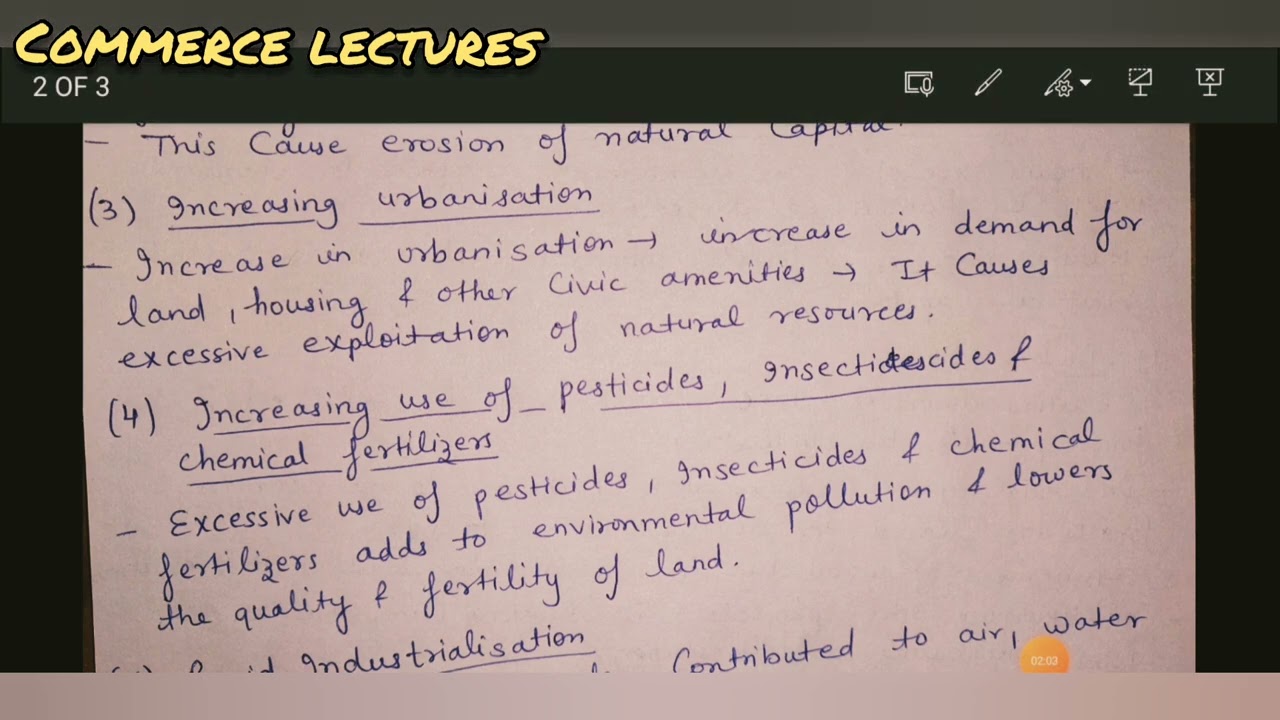 COMMERCE LECTURES
2 OF 3
- This Cause erosion of natural Capital.
(3) Increasing urbanisation
- Increase in urbanisation → increase in demand for
land, housing & other Civic amenities → It Causes
excessive exploitation of natural resources.
(4) Increasing use of pesticides, Insecticides &
chemical fertilizers
- Excessive use of pesticides, Insecticides & chemical
fertilizers adds to environmental pollution & lowers
the quality & fertility of land.
Industrialisation
Contributed to air, water
02:03